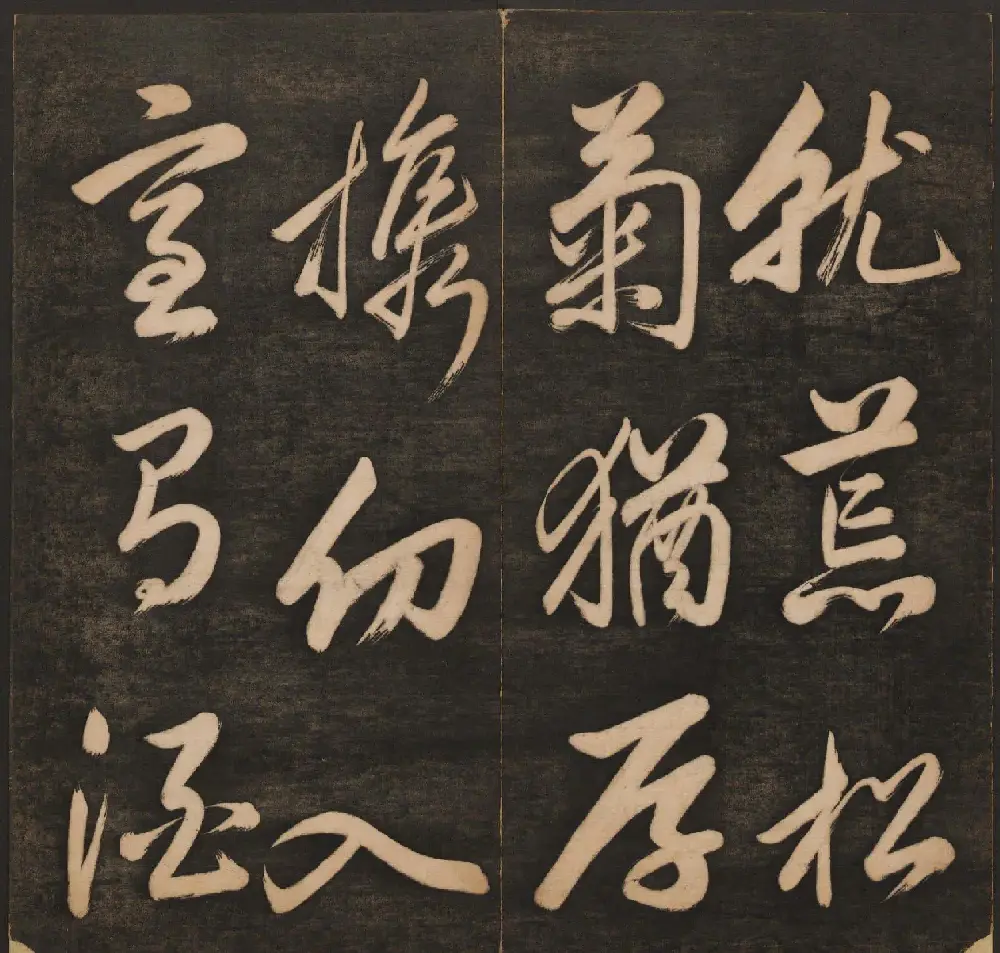 就荒松
菊猶存
携幼入
室有酒